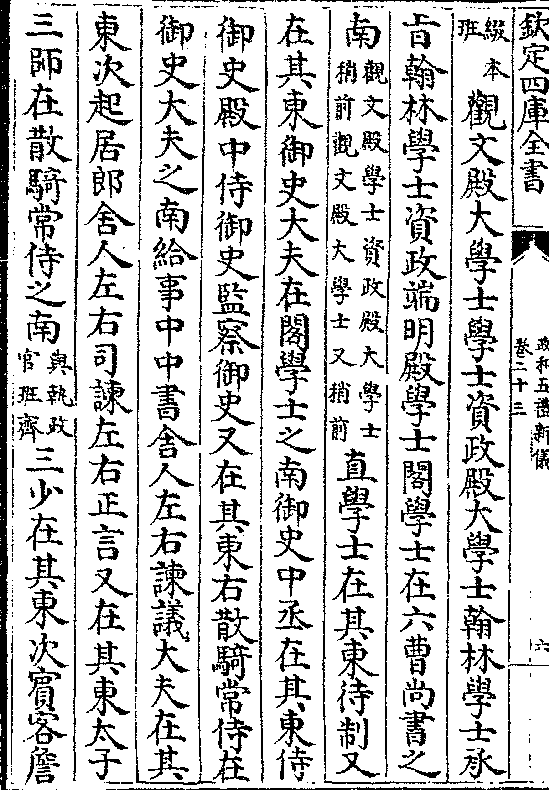 欽定四庫全書
政和五禮新儀
卷二十三
六
綴本班觀文殿大學士學士資政殿大學士翰林學士承
旨翰林學士資政端明殿學士閣學士在六曹尚書之
南觀文殿學士資政殿大學士稍前觀文殿大學士又稍前直學士在其東待制又
在其東御史大夫在閣學士之南御史中丞在其東侍
御史殿中侍御史監察御史又在其東右散騎常侍在
御史大夫之南給事中中書舍人左右諫議大夫在其
東次起居郎舍人左右司諫左右正言又在其東太子
三師在散騎常侍之南與執政官班齊三少在其東次賓客詹